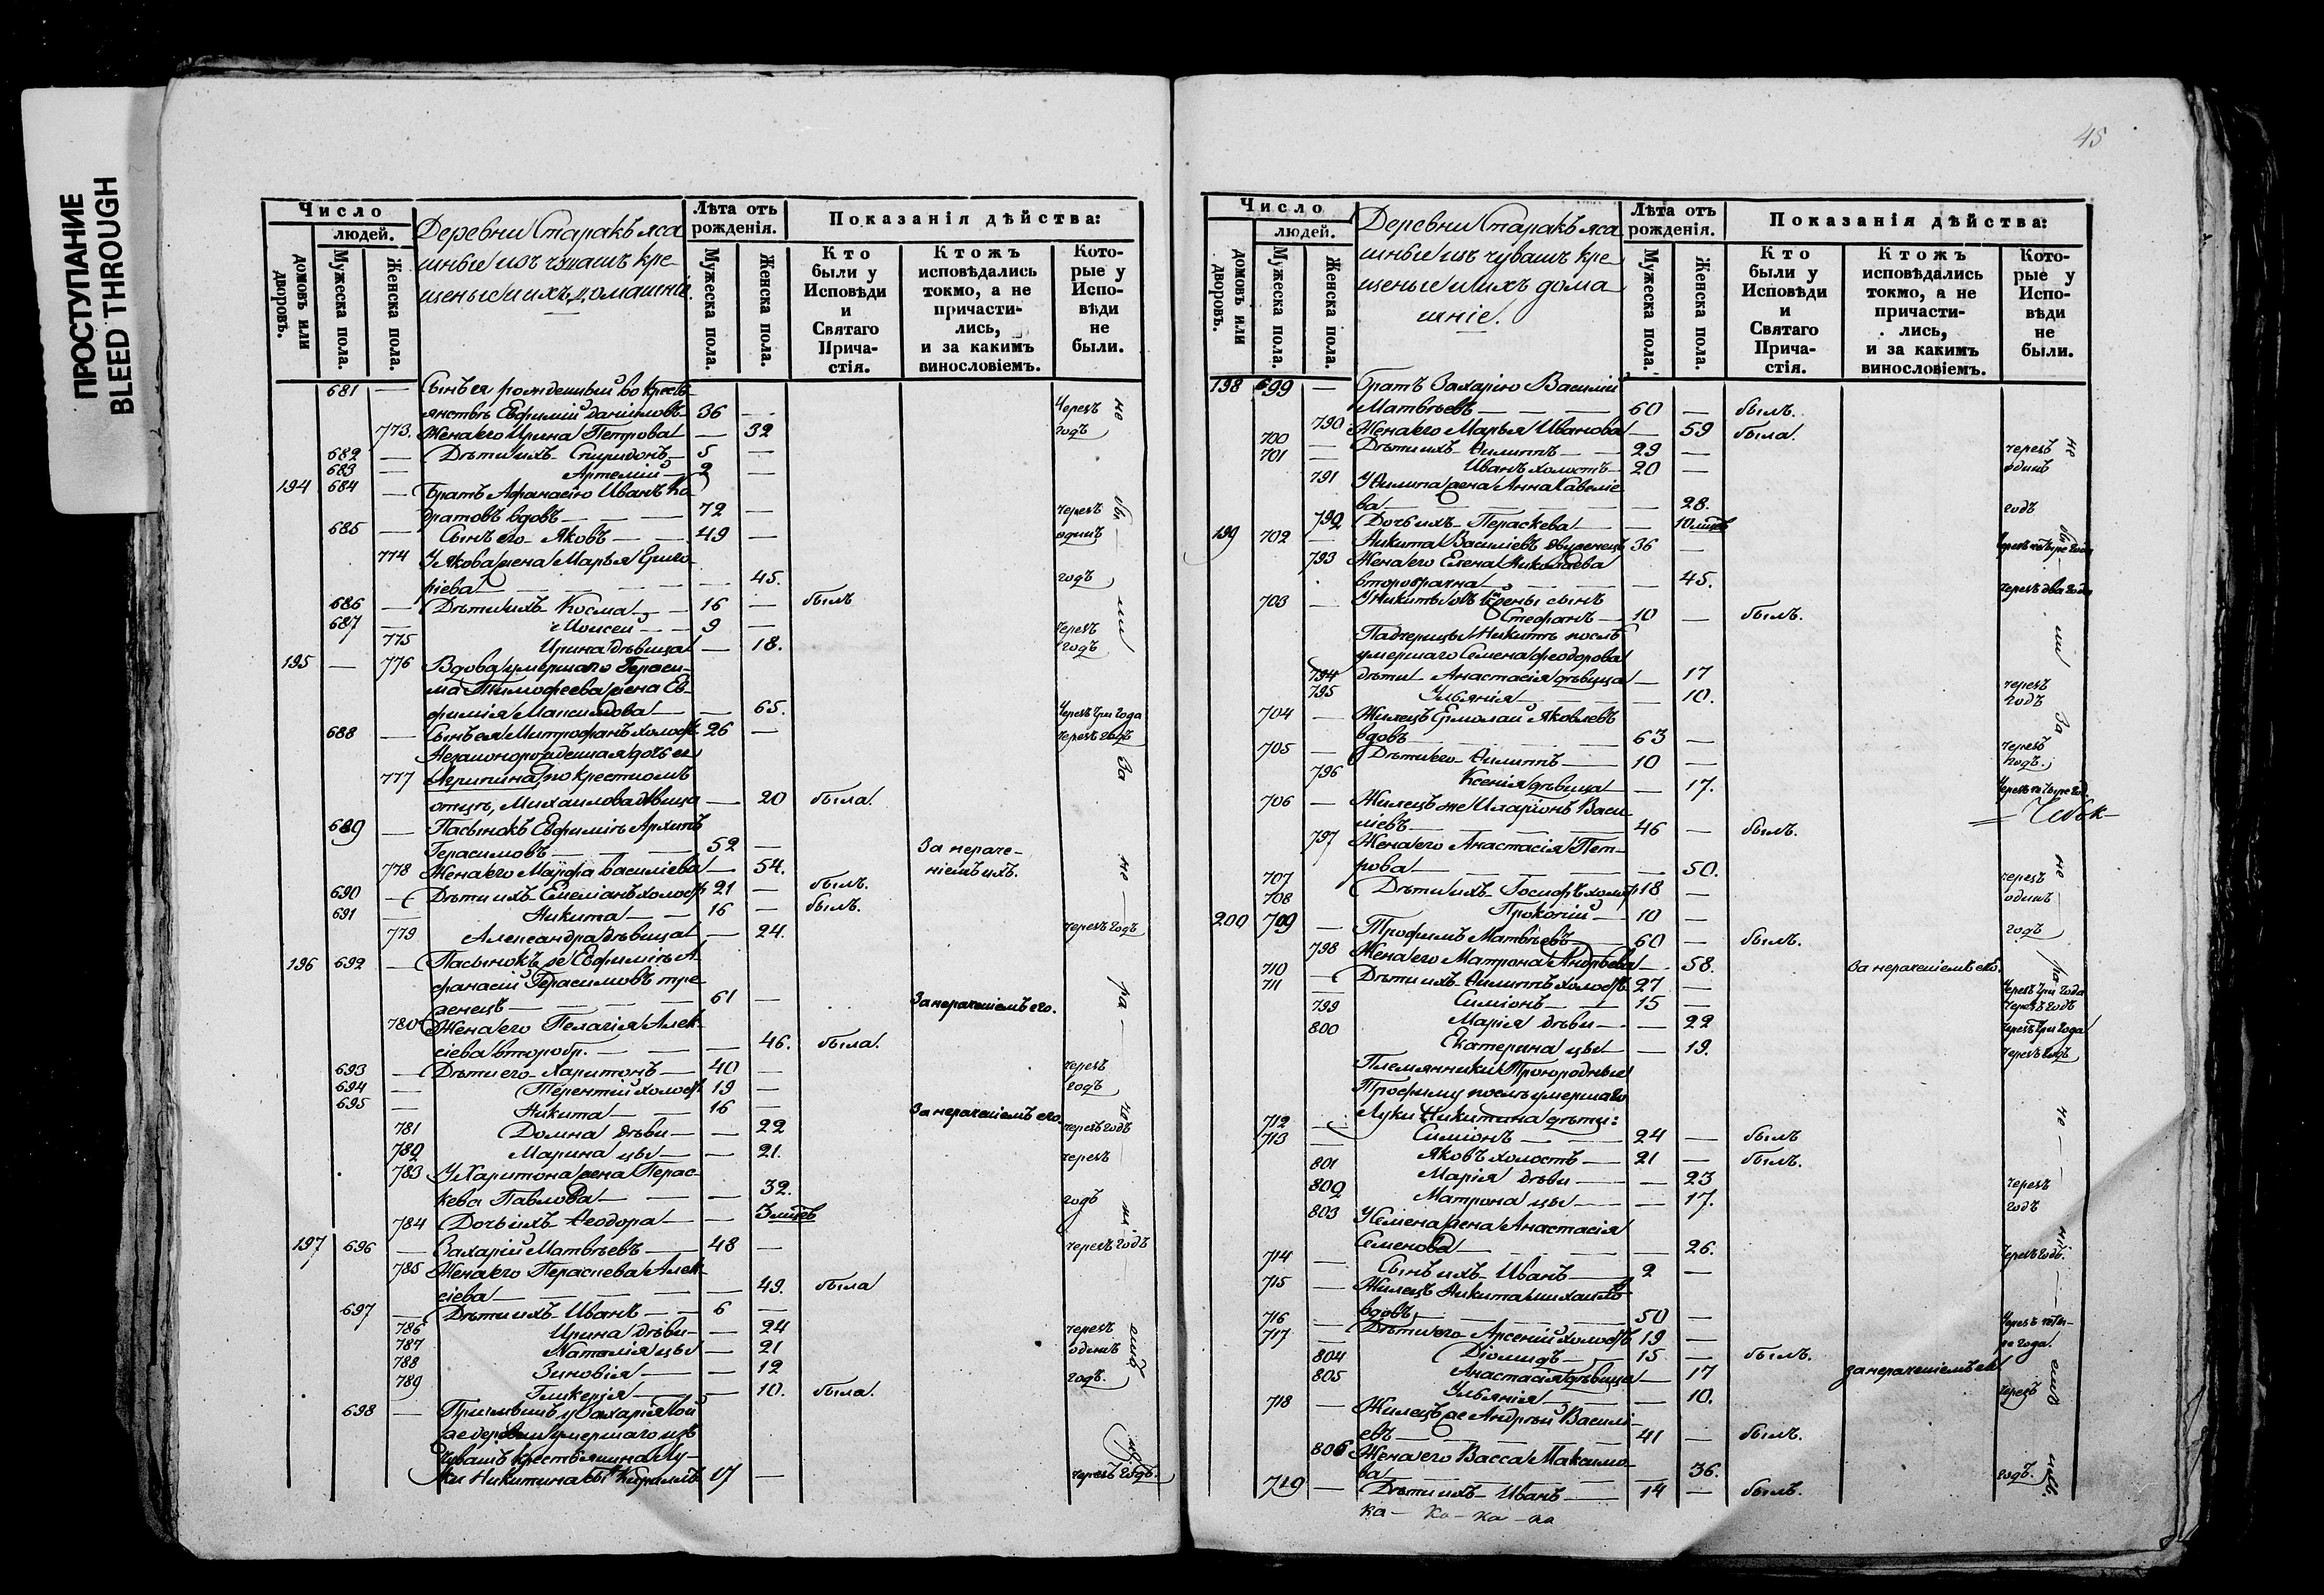 ПРОСТУПАНИЕ
BLEED THROUGH
Число
людей.
домовъ или дворовъ.
Мужеска пола.
Женска пола.
Деревни Старакъ яса
шные изъ чувашъ кре
щеные и ихъ домашніе.
Лѣта отъ рожденія.
Мужеска пола.
Женска пола.
Показанія дѣйства:
Кто были у Исповѣди и Святаго Прича-стія.
Ктожъ исповѣдались токмо, а не причасти-лись, и за какимъ винословіемъ.
Кото-рые у Испо-вѣди не были.
681 — Сынъ ея рожденный во кресть
янствѣ Евфимій Даніиловъ 36 — Черезъ
773. Жена его Ирина Петрова — 32 годъ
682 — Дѣти ихъ Спиридонъ 5 —
683 — Артемій 2 —
194 684 — Братъ Афанасію Иванъ Ко
дратовъ вдовъ 72 — черезъ
685 — Сынъ его Яковъ 49 — одинъ
774 У Якова жена Марья Григо
ріева — 45. годъ
686 — Дѣти ихъ Косма 16 — былъ
687 — Моисей 9 — Черезъ
775 Ирина дѣвица — 18. годъ
195 — 776 Вдова умершаго Гераси-
ма Тимофеева жена Ев-
фимія Максимова — 65. Черезъ три года
688 — Сынъ ея Митрофанъ холост. 26 — черезъ годъ
Незаконорожденная дочь ея
777 Агрипина, по крестномъ
отцѣ, Михаилова дѣвица — 20 была.
689 — Пасынокъ Евфиміѣ Архипъ
Герасимовъ 52 — За нераче-
778 Жена его Марфа Василіева — 54. ніемъ ихъ.
690 — Дѣти ихъ Емеліанъ холост 21 — былъ.
691 — Никита 16 — былъ.
779 Александра дѣвица — 24. черезъ годъ
196 692 — Пасынокъ же Евфиміѣ А
фанасій Герасимовъ тре
женецъ 61 — За нераченіемъ его.
780 Жена его Пелагія Алек-
сіева второбр. — 46. была.
693 — Дѣти его Харитонъ 40 — черезъ
694 — Терентій холост 19 — годъ
695 — Никита 16 — За нераченіемъ его.
781 Домна дѣви — 22 черезъ годъ
782 Марина цы — 21. черезъ
783 У Харитона жена Перас-
кева Павлова — 32. годъ
784 Дочь ихъ Ѳеодора — 3 мѣсяц
197 696 — Захарій Матвѣевъ 48 — черезъ годъ
785 Жена его Пераскева Алек-
сіева — 49. была
697 — Дѣти ихъ Иванъ 6 —
786 Ирина дѣви — 24 черезъ
787 Наталія цы — 21 одинъ
788 Зиновія — 12
789 Гликерія — 10. была. годъ.
698 — у Захарія той
же деревни умершаго изъ
чувашъ крестьянина Лу-
ки Никитина 17 — черезъ годъ.
45
Число
людей.
домовъ или дворовъ.
Мужеска пола.
Женска пола.
Деревни Старакъ яса
шные изъ чувашъ кре
щеные и ихъ дома
шніе.
Лѣта отъ рожденія.
Мужеска пола.
Женска пола.
Показанія дѣйства:
Кто были у Исповѣди и Святаго Прича-стія.
Ктожъ исповѣдались токмо, а не причасти-лись, и за какимъ винословіемъ.
Кото-рые у Испо-вѣди не были.
198 699 — Братъ Захарію Василій
Матвѣевъ 60 — былъ.
790 Жена его Марья Иванова — 59 была.
700 — Дѣти ихъ Филиппъ 29 — черезъ
701 — Иванъ холостъ 20 — одинъ
791 У Филипа жена Анна Савеліе
ва — 28. годъ
792 Дочь ихъ Пераскева — 10 мѣсяц
199 702 — Никита Василіевъ двуженецъ 36 — Черезъ четыре года
793 Жена его Елена Николаева
второбрачна — 45. черезъ два года
703 — У Никиты отъ жены сынъ
Стефанъ 10 — былъ.
Падчерицы Никитѣ послѣ
умершаго Семена Феодорова
794 дѣти Анастасія дѣвица — 17 черезъ
795 Ульянія — 10. годъ
704 — Жилецъ Ермолай Яковлевъ
вдовъ 63 — черезъ
705 — Дѣти его Филиппъ 10 — годъ.
796 Ксенія дѣвица — 17. Черезъ четыре год.
706 — Жилецъ же Иларіонъ Васи
ліевъ 46 — былъ.
797 Жена его Анастасія Пет-
рова — 50.
707 Дѣти ихъ Іосифъ холост 18 — черезъ
708 Прокопій 10 — одинъ
200 709 — Трофимъ Матвѣевъ 60 — былъ. годъ
798 Жена его Матрона Андрѣева — 58. За нераченіемъ ею.
710 — Дѣти ихъ Филиппъ холост 27 — Черезъ три года
711 — Симіонъ 15 — Черезъ годъ
799 Марія дѣви — 22 черезъ три года
800 Екатерина цы — 19. черезъ годъ
Племянники Троюродные
Трофиму послѣ умершаго
Луки Никитина дѣти:
712 — Симіонъ 24 — былъ
713 — Яковъ холостъ 21 — былъ.
801 Марія дѣви — 23 черезъ
802 Матрона цы — 17. годъ
803 У Семіена жена Анастасія
Семенова — 26. Черезъ годъ.
714 — Сынъ ихъ Иванъ 2 —
715 — Жилецъ Никита Михаило
вдовъ 50 — Черезъ четы-
716 — Дѣти его Арсеній холост 19 — ре года.
717 — Діомидъ 15 — былъ.
804 Анастасія дѣвица — 17 за нераченіемъ ея
805 Ульянія — 10. черезъ
718 — Жилецъ же Андрей Василі-
евъ 41 — былъ.
806 Жена его Васса Максимо-
ва — 36. годъ.
719 — Дѣти ихъ Иванъ 14 — былъ.